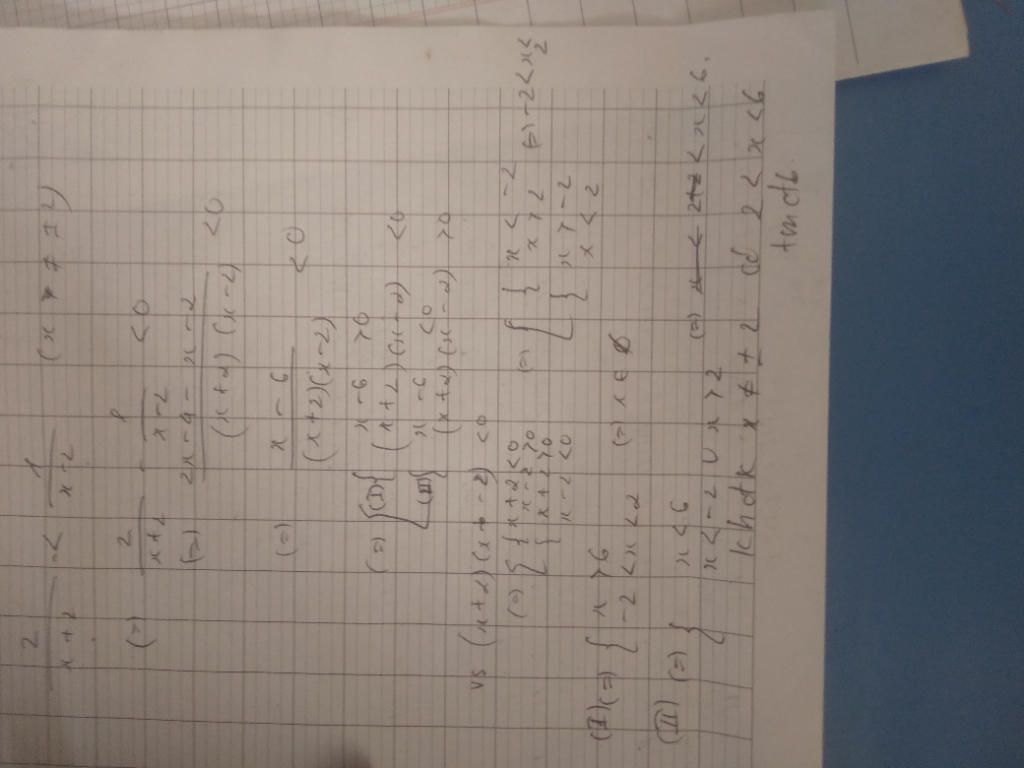 2/(x+2) < 1/(x-2) (x ≠ ±2)
(=) 2/(x+2) - 1/(x-2) < 0
(=) (2x-4-x-2)/((x+2)(x-2)) < 0
(=) (x-6)/((x+2)(x-2)) < 0
(=) [ (I) { x-6 > 0
(x+2)(x-2) < 0
(II) { x-6 < 0
(x+2)(x-2) > 0
vs (x+2)(x-2) < 0
(=) [ { x+2<0 (=) [ { x < -2 (=) -2<x<2
x-2>0 x > 2
{ x+2>0 { x > -2
x-2<0 x < 2
(I) (=) { x > 6 (=) x ∈ ∅
-2 < x < 2
(II) (=) { x < 6 (=) 2 < x < 6.
x < -2 ∪ x > 2
Khđk x ≠ ±2 2 < x < 6
tmđb.